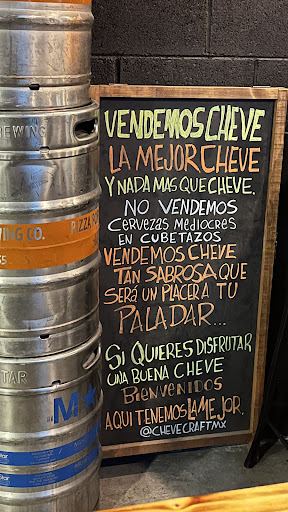 VENDEMOS CHEVE
LA MEJOR CHEVE
Y NADA MAS QUE CHEVE.
NO VENDEMOS
Cervezas Mediocres
EN CUBETAZOS
VENDEMOS CHEVE
TAN SABROSA QUE
SERÁ UN PLACER A TU
PALADAR...
SI QUIERES DISFRUTAR
UNA BUENA CHEVE
BIENVENIDOS
AQUI TENEMOS LA MEJOR.
@CHEVECRAFTMX
EWING
WING CO.
PIZZA
M